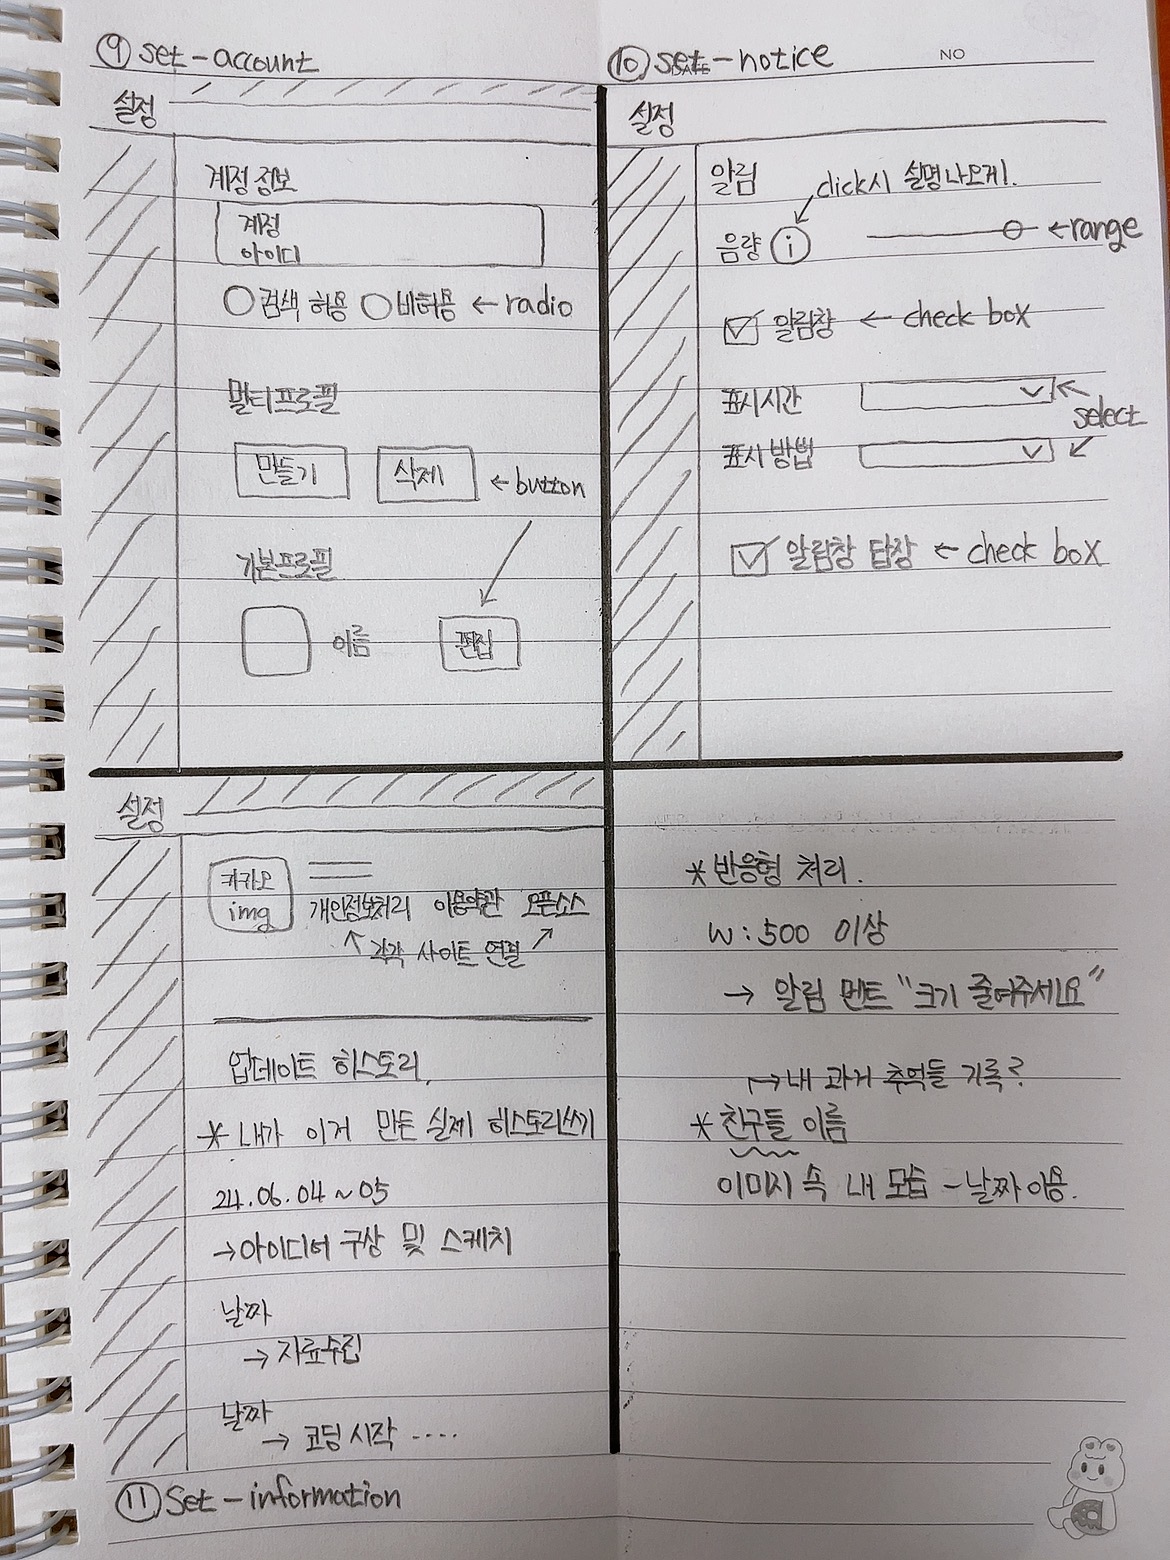 ⑨ set-account
설정
계정 정보
계정
아이디
○검색 허용 ○비허용 ← radio
멀티프로필
만들기 삭제 ← button
기본프로필
이름 편집
⑩ set-notice
NO
설정
알림 click시 설명나오게!
음량 ⓘ ←range
☑ 알림창 ← check box
표시시간
select
표시방법
☑ 알림창 답장 ← check box
설정
카카오
img
개인정보처리 이용약관 오픈소스
각각 사이트 연결
업데이트 히스토리,
* 내가 이거 만든 실제 히스토리쓰기
24.06.04 ~ 05
→아이디어 구상 및 스케치
날짜
→ 자료수집
날짜
→ 코딩 시작 ....
⑪ Set - information
* 반응형 처리.
W : 500 이상
→ 알림 멘트 "크기 줄여주세요"
→내 과거 추억들 기록?
* 친구들 이름
이미지 속 내 모습 - 날짜 이용.